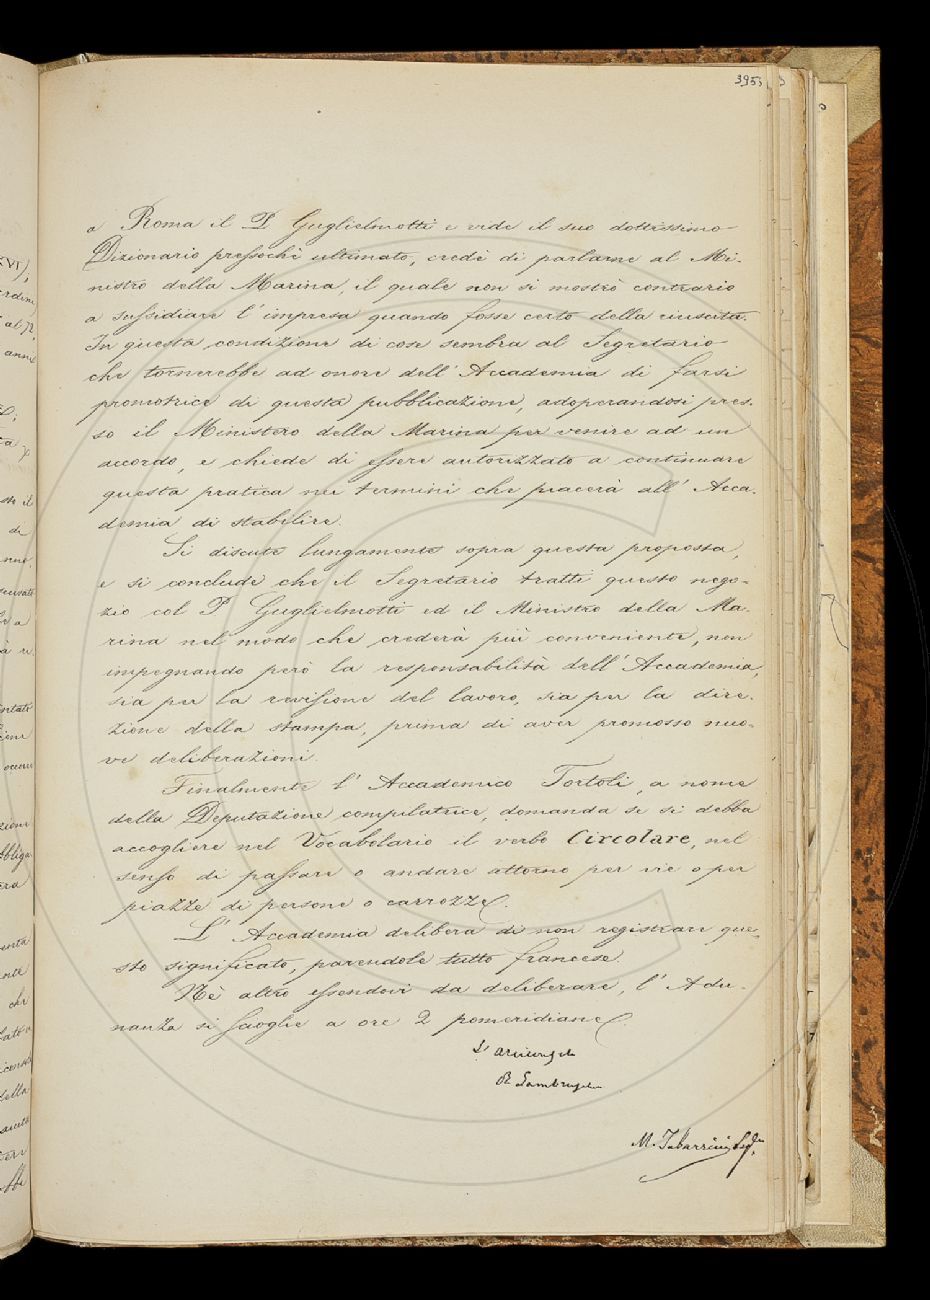 395
a Roma il P. Guglielmotti e vide il suo dottissimo
Dizionario pressochè ultimato, credè di parlarne al Mi-
nistro della Marina, il quale non si mostrò contrario
a sussidiare l'impresa quando fosse certo della riuscita.
In questa condizione di cose sembra al Segretario
che tornerebbe ad onore dell'Accademia di farsi
promotrice di questa pubblicazione, adoperandosi pres-
so il Ministero della Marina per venire ad un
accordo, e chiede di essere autorizzato a continuare
questa pratica nei termini che piacerà all'Acca-
demia di stabilire.
Si discute lungamente sopra questa proposta,
e si conclude che il Segretario tratti questo nego-
zio col P. Guglielmotti ed il Ministro della Ma-
rina nel modo che crederà più conveniente, non
impegnando però la responsabilità dell'Accademia,
sia per la revisione del lavoro, sia per la dire-
zione della stampa, prima di aver promosso nuo-
ve deliberazioni.
Finalmente l'Accademico Tortoli, a nome
della Deputazione compilatrice, domanda se si debba
accogliere nel Vocabolario il verbo Circolare, nel
senso di passare o andare attorno per vie o per
piazze di persone o carrozze.
L'Accademia delibera di non registrare que-
sto significato, parendole tutto francese.
Nè altro essendovi da deliberare, l'Adu-
nanza si scioglie a ore 2 pomeridiane.
L'Arciconsolo
R. Lambruschini
M. Tabarrini Seg.